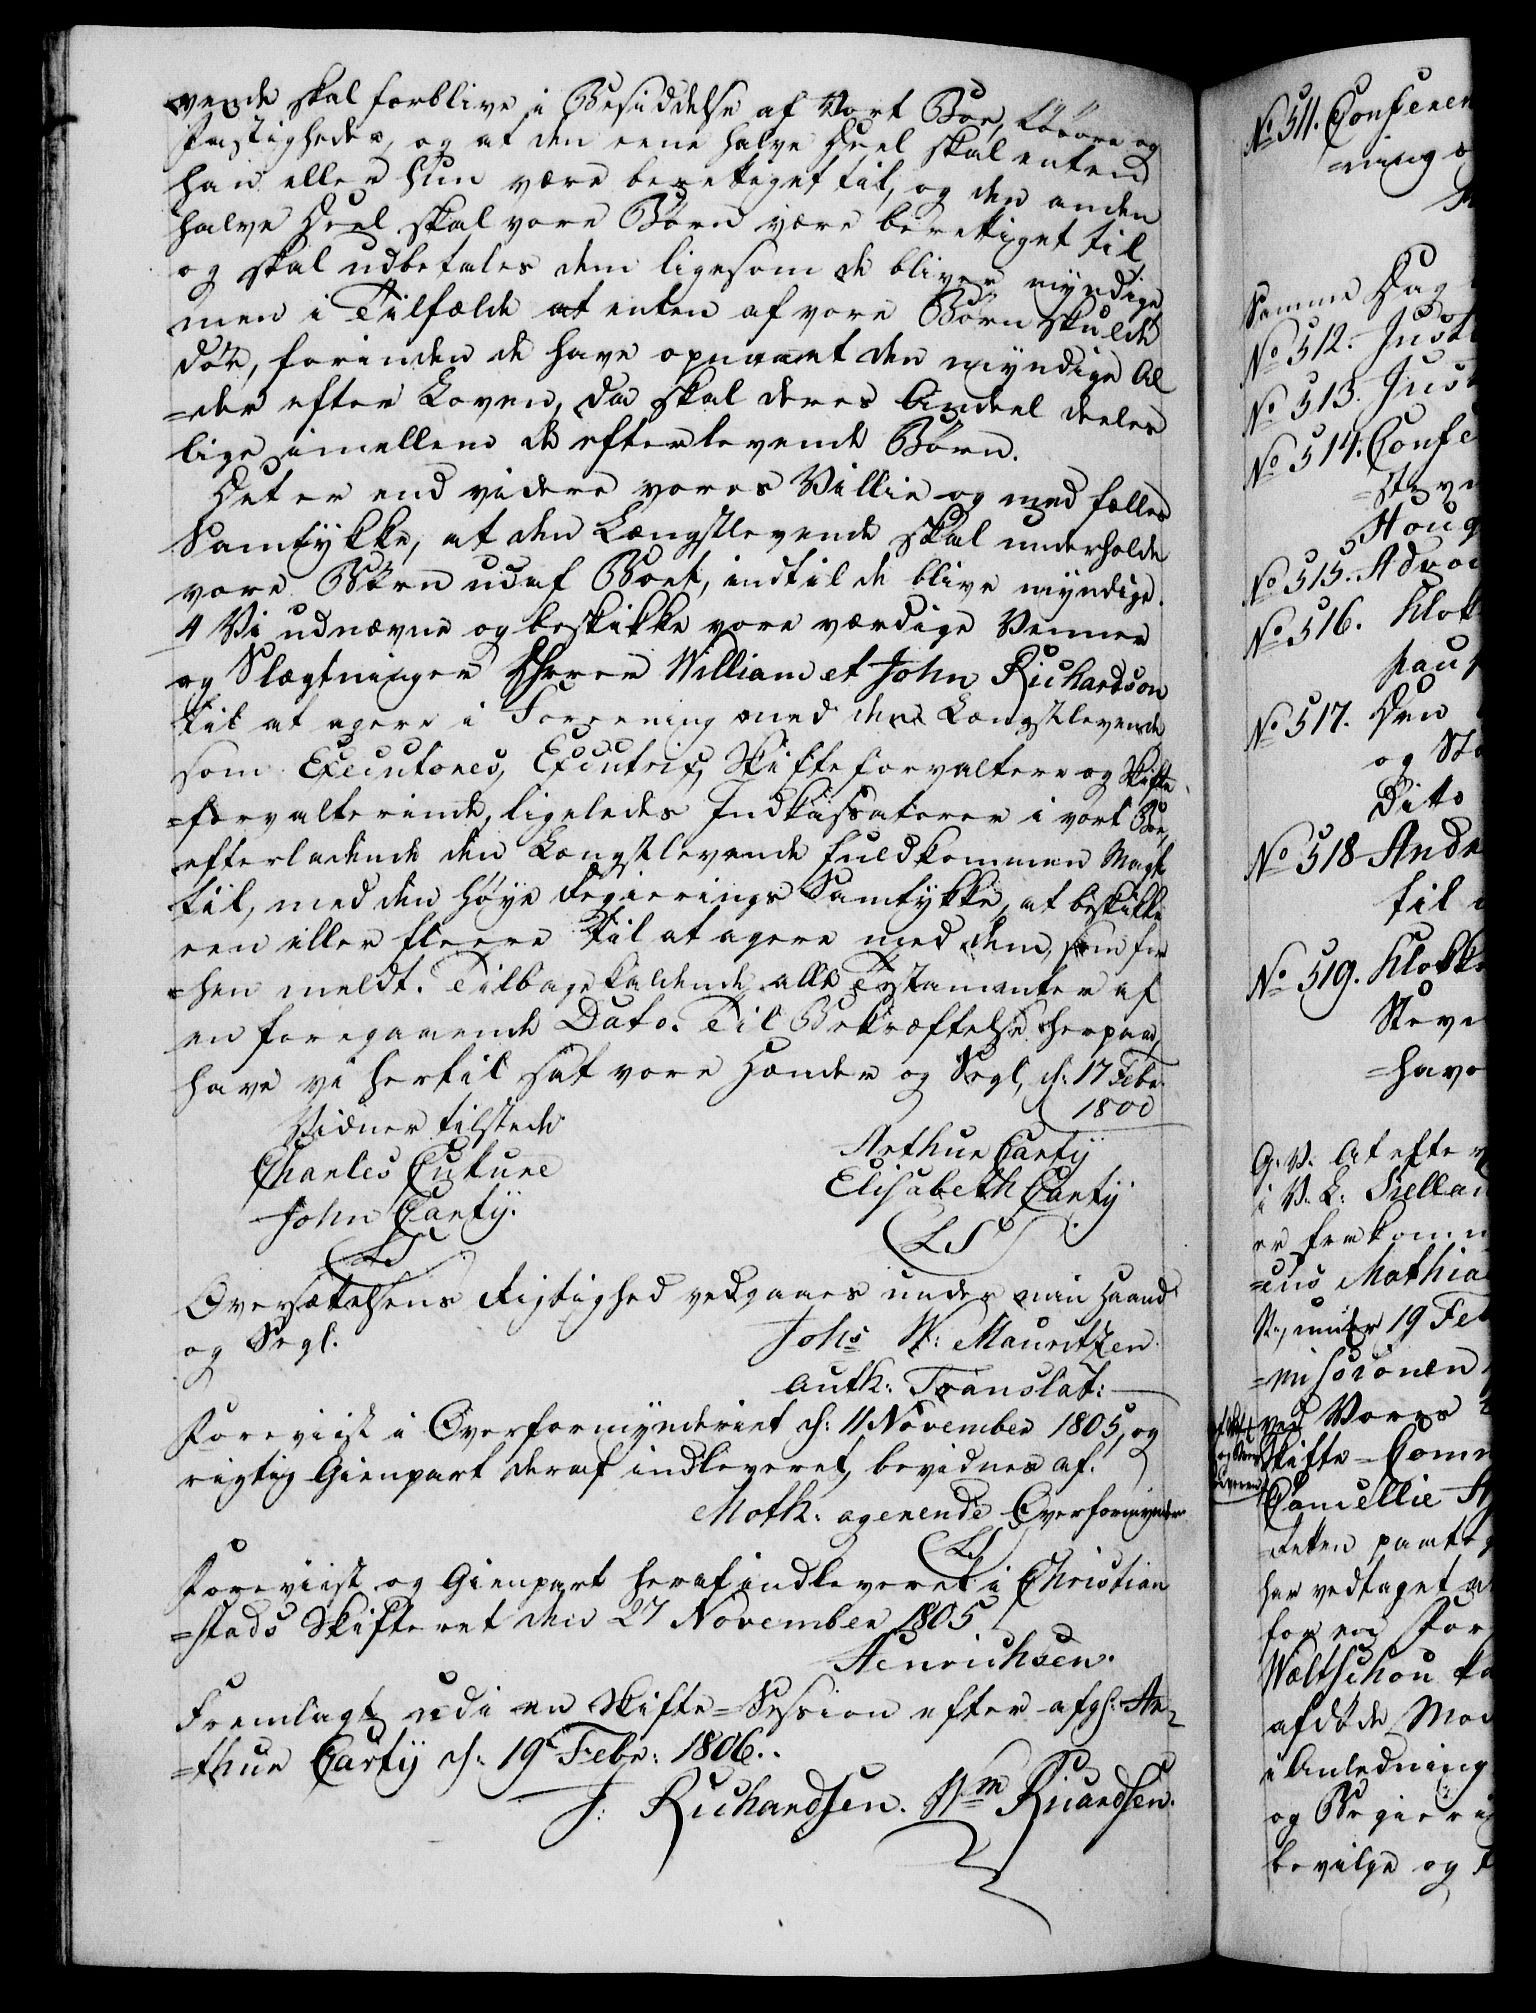 vende skal forblive i Besiddelse af Vort Boe, Løsøre og
Fastigheder, og at den eene halve Deel skal enten
han eller hun være berettiget til, og den anden
halve Deel skal vore Børn være berettiget til
og skal udbetales dem ligesom de bliver myndige
men i Tilfælde at enten af vore Børn skulde
døe, forinden de have opnaaet den myndige Al
=der efter Loven, da skal deres Andeel deeles
lige imellem de efterlevende Børn.
Det er end videre vores Villie og med fælles
Samtykke, at den Længstlevende skal underholde
vore Børn udaf Boet, indtil de blive myndige.
4 Vi udnævne og beskikke vore værdige Venner
og Slægtninger Hrrer William et John Richardson
til at agere i Foreening med den Længstlevende
som Executores, Executrix, Skifteforvaltere og Skifte
=forvalterinde, ligeledes Indkassatorer i vort Boe,
efterladende den Længstlevende fuldkommen Magt
til, med den høye Regierings Samtykke, at beskikke
een eller fleere til at agere med dem, som for
=hen meldt. Tilbagekaldende alle Testamenter af
en foregaaende Dato. Til Bekræftelse herpaa,
have vi hertil sat vore Hænder og Segl, d: 17 Febr
1800
Vidner tilstede
Arthur Carty
Charles Cukure
Elisabeth Carty
John Carty.
LS
LS
Oversættelsens Rigtighed vedgaaes under min Haand
og Segl.
Johs W: Mauritzen.
auth: Translat:
Foreviist i Overformynderiet d: 11 November 1805, og
rigtig Gienpart deraf indleveret, bevidnes af.
Moth: agerende Overformynder
LS
Foreviist og Gienpart heraf indleveret i Christian
=stads Skifteret den 27 November 1805
Henrichsen.
Fremlagt udi en Skifte=Session efter afgl: Ar
=thur Carty d: 19 Febr: 1806..
J: Richardsen. Wm Ricardsen.
No 511. Conferen
=ning
Samme Dag
No 512. Just
No 513. Just
No 514. Confe
Houg
No 515. Advoc
No 516. Klok
No 517. Den
og St
Dito
No 518 Andr
til
No 519. Klokk
Steve
=havn
G. V. At efter
i V. L: Siellan
er frekomm
=us Mathia
St., under 19 Feb
=missionen
ved Vores
Skifte=Comm
Cancellie
=retten paata
har vedtaget
for en For
Woltschou
afdøde Mod
i Anledning
og Begier
bevilge og